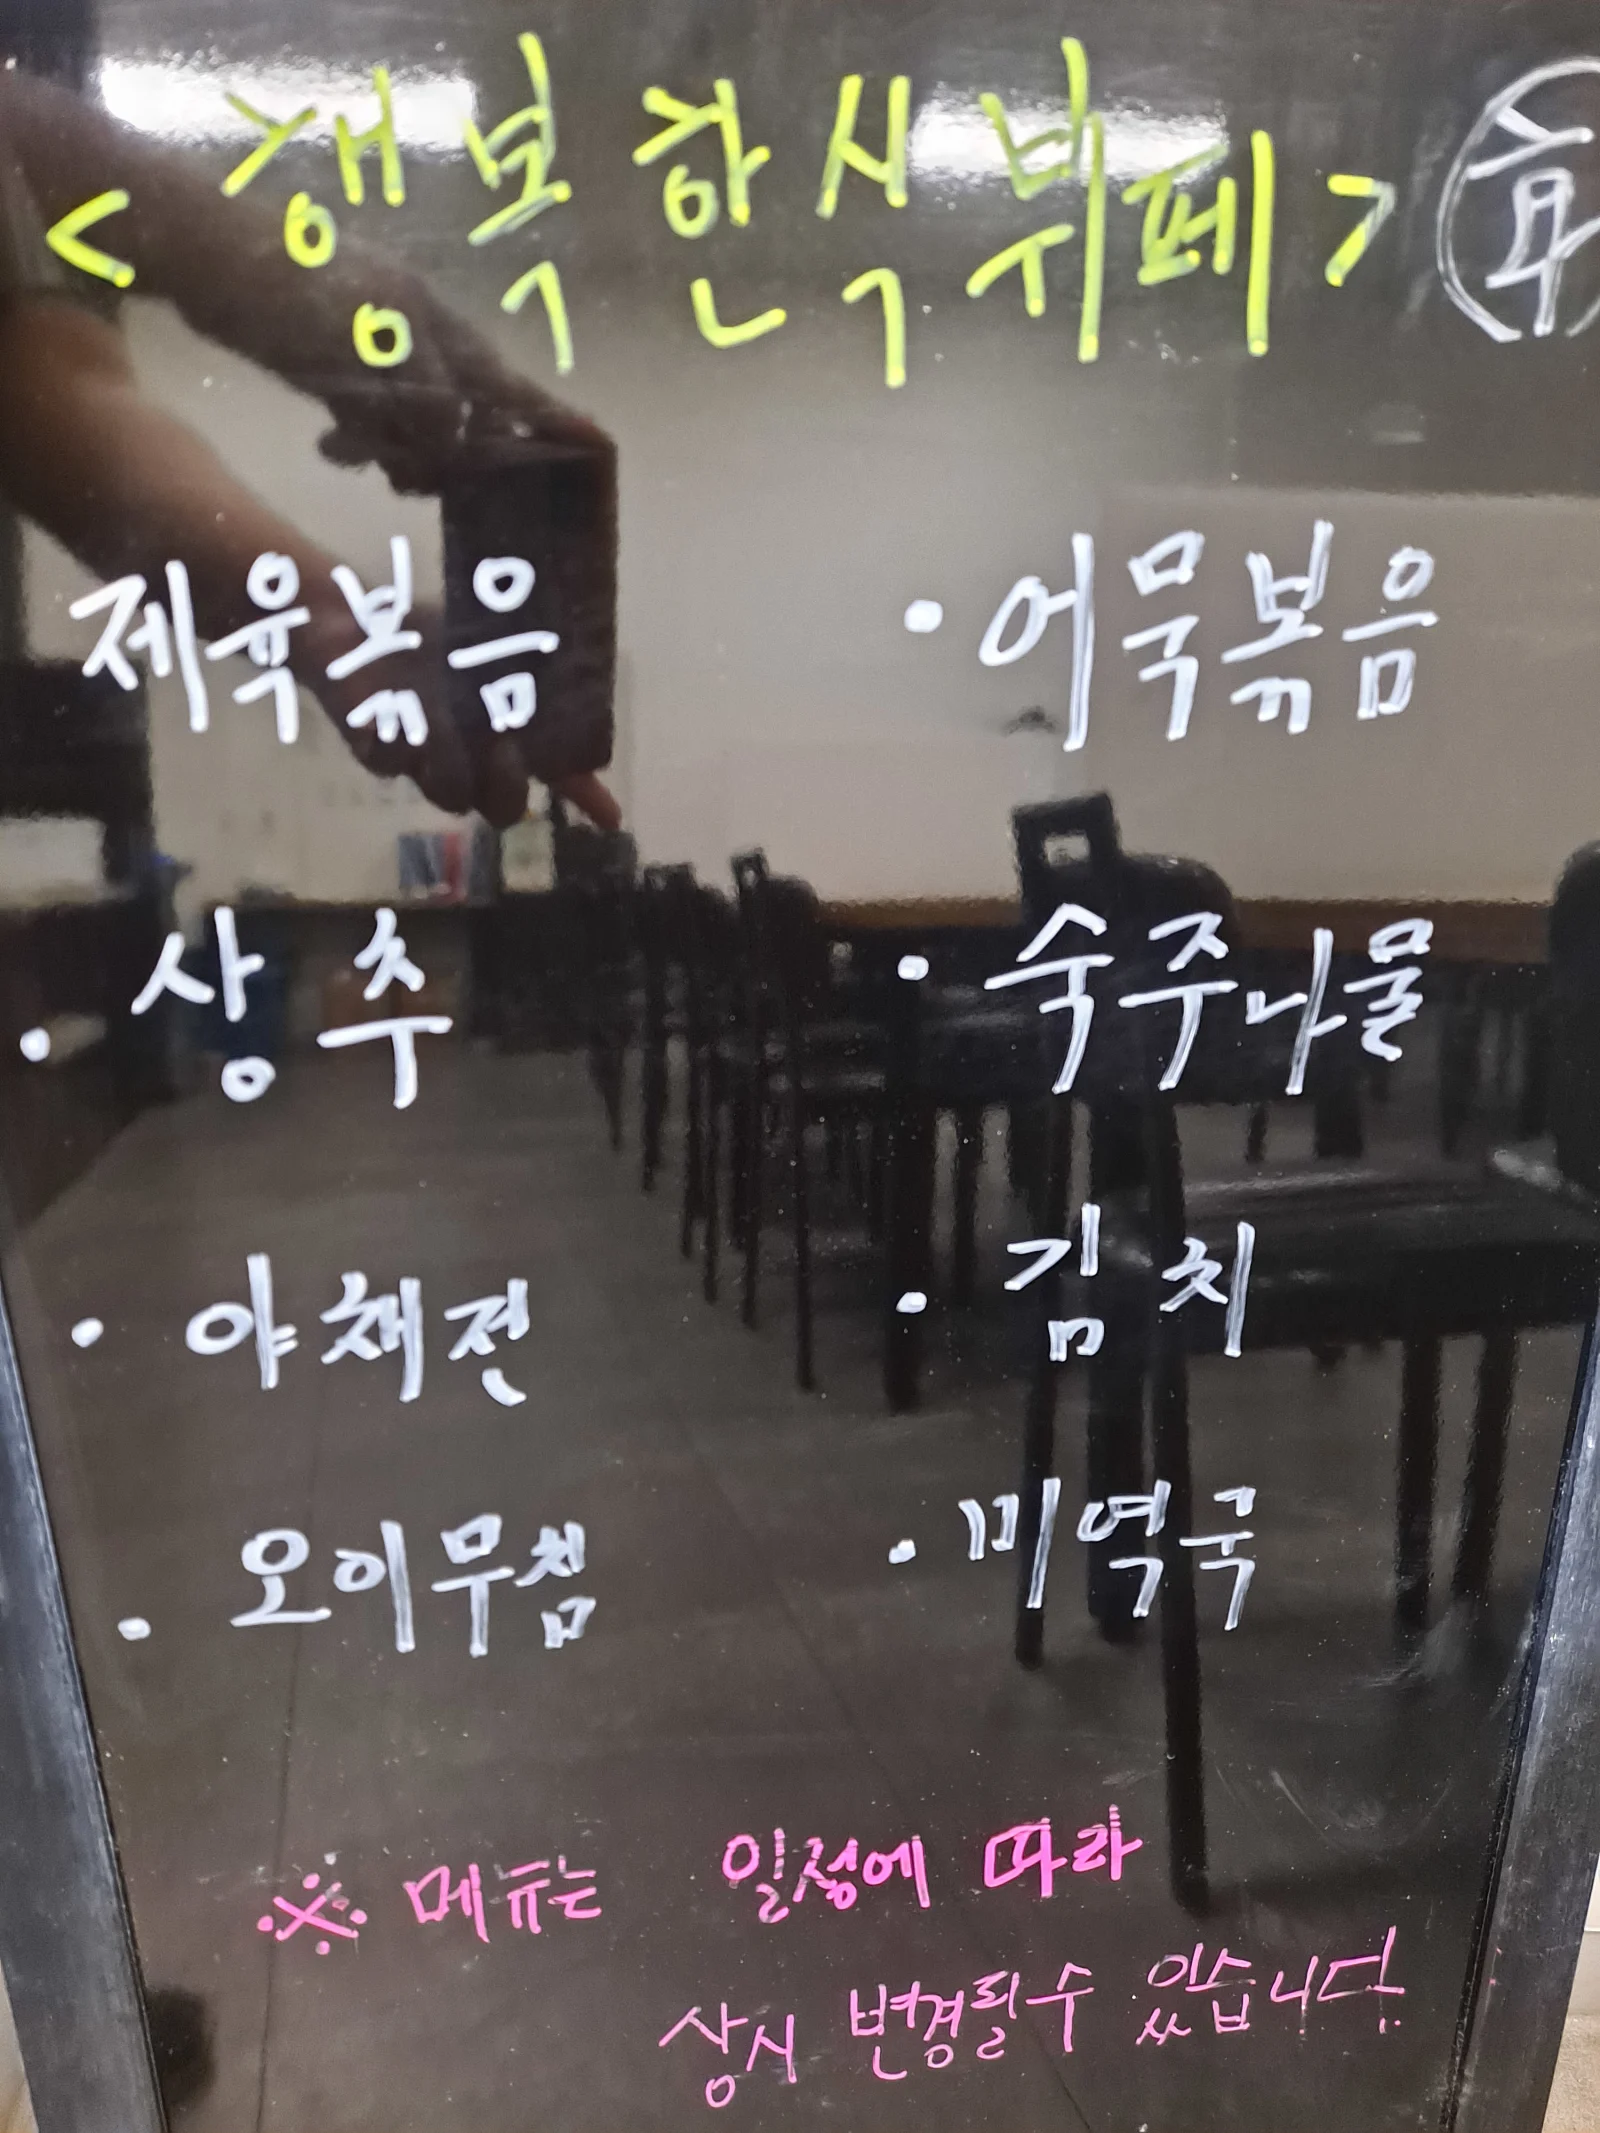 <행복한식뷔페>
제육볶음
• 어묵볶음
• 상추
• 숙주나물
• 야채전
• 김치
• 오이무침
• 미역국
※ 메뉴는 일정에 따라
상시 변경될 수 있습니다.